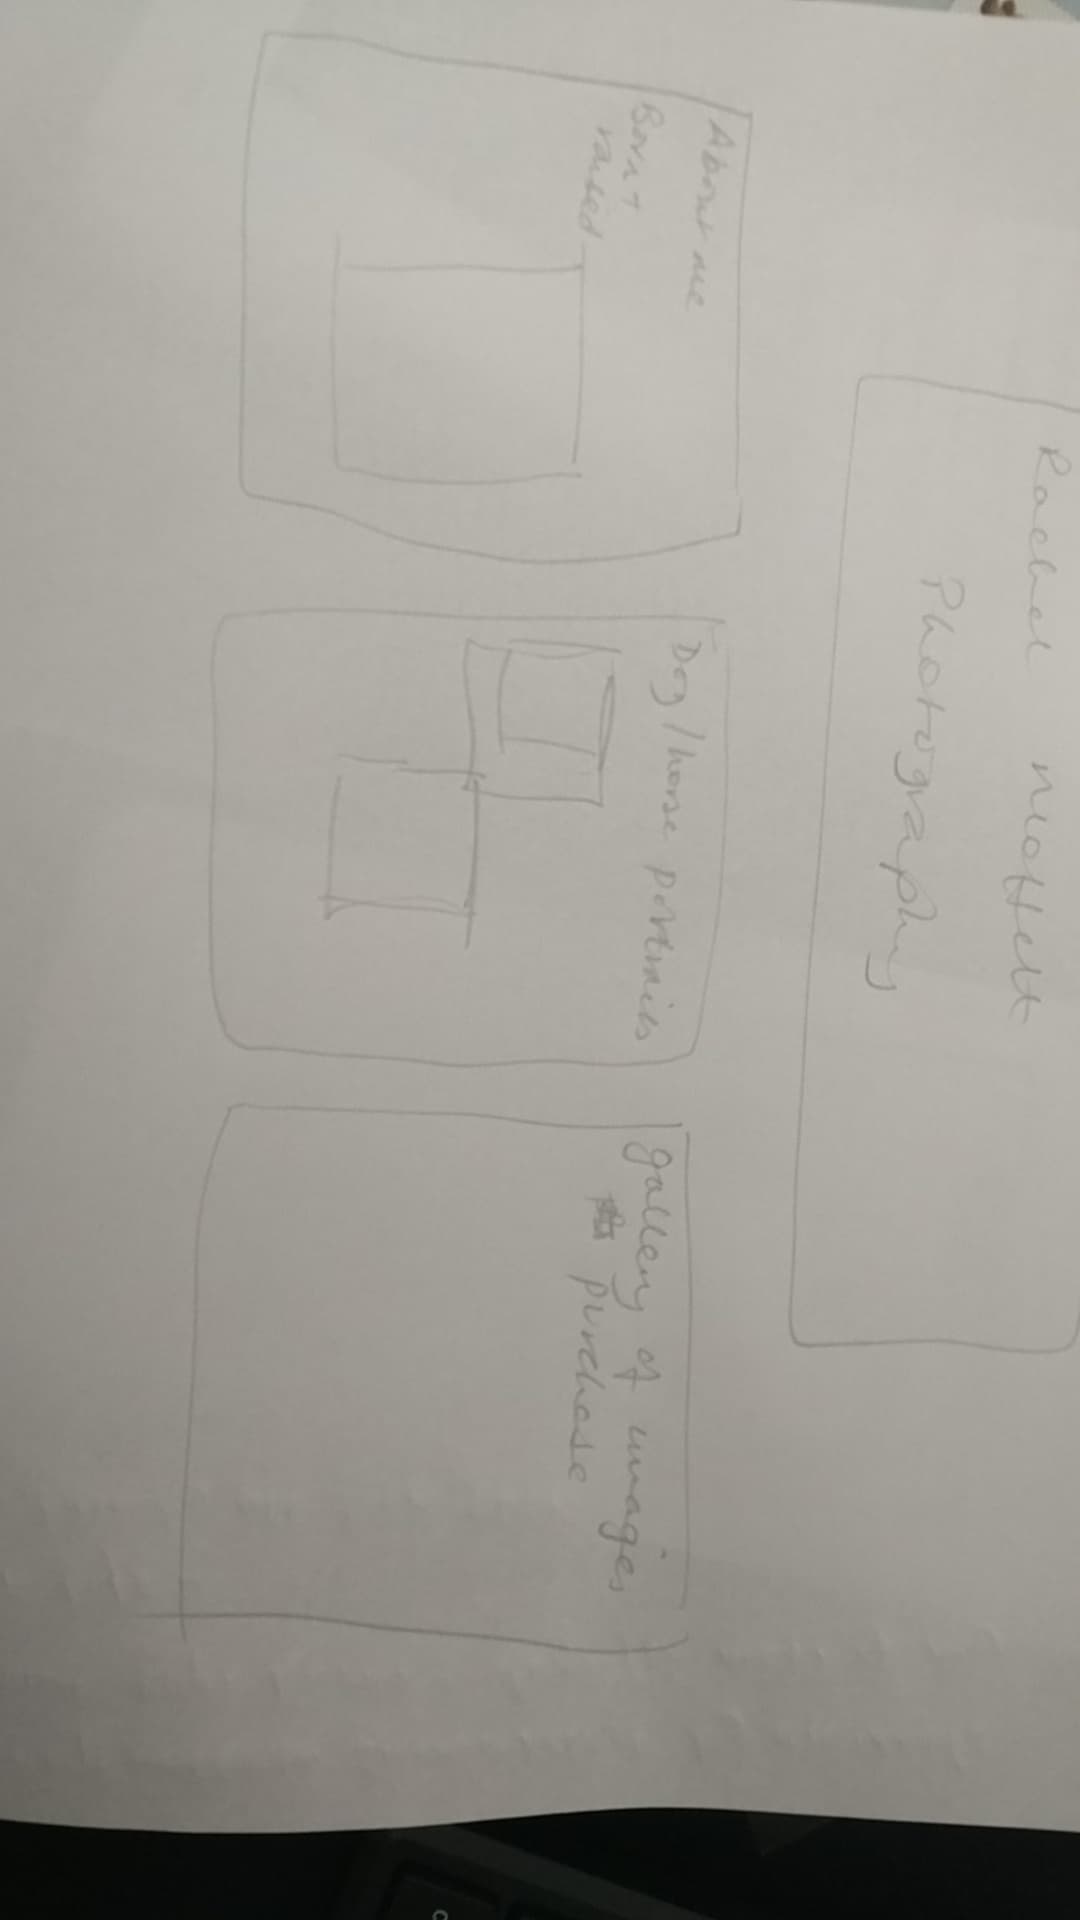 Rachel Moffett
Photography
About me
Born +
raised
Dog / horse portraits
gallery of images
purchase